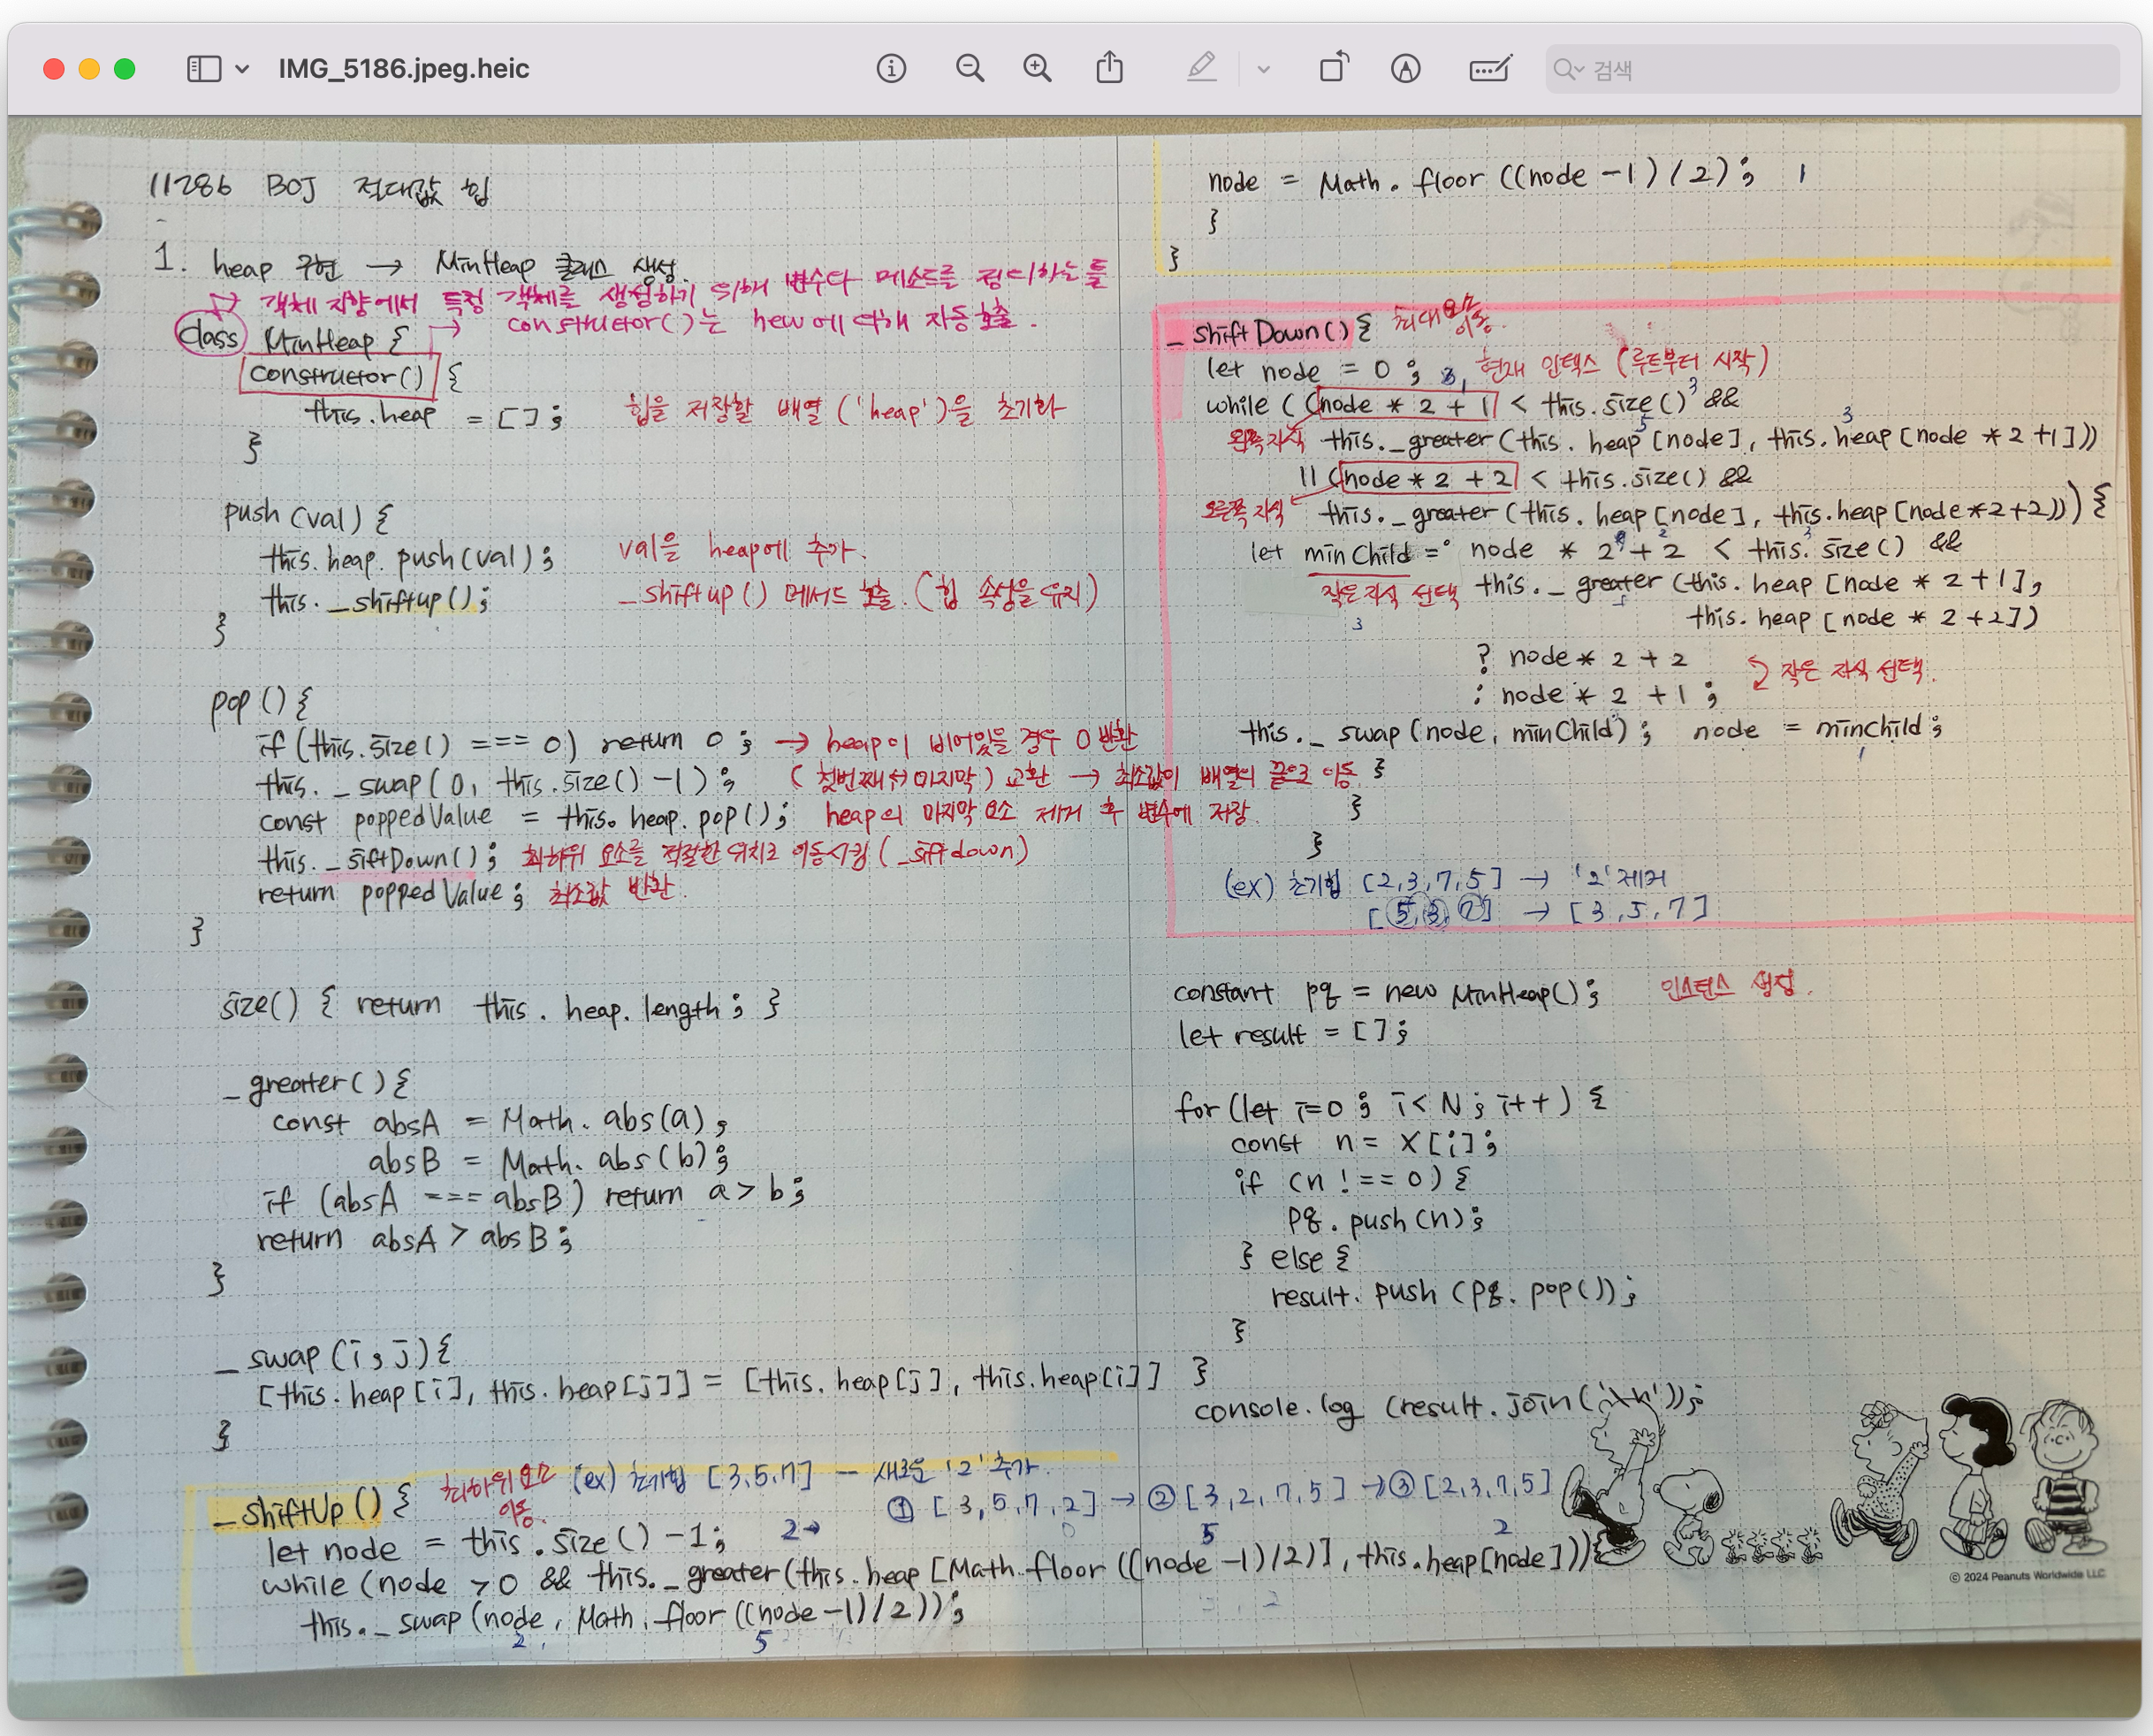 IMG_5186.jpeg.heic
검색
11286 BOJ 절대값 힙
1. heap 구현 → MinHeap 클래스 생성.
객체 지향에서 특정 객체를 생성하기 위해 변수나 메소드를 정의하는 틀
constructor()는 new에 의해 자동 호출.
class MinHeap {
constructor() {
this.heap = []; 힙을 저장할 배열 ('heap')을 초기화
}
push (val) {
this.heap.push(val); val을 heap에 추가.
this._shiftup(); _shiftup() 메서드 호출. (힙 속성을 유지)
}
pop () {
if (this.size() === 0) return 0; → heap이 비어있을 경우 0 반환
this._swap(0, this.size() -1); (첫번째↔마지막) 교환 → 최소값이 배열의 끝으로 이동
const poppedValue = this.heap.pop(); heap의 마지막 요소 제거 후 변수에 저장.
this._siftDown(); 최하위 요소를 적절한 위치로 이동시킴 (_siftdown)
return poppedValue; 최소값 반환.
}
size() { return this.heap.length; }
_greater() {
const absA = Math.abs(a),
absB = Math.abs(b);
if (absA === absB) return a > b;
return absA > absB;
}
_swap (i, j) {
[this.heap[i], this.heap[j]] = [this.heap[j], this.heap[i]]
}
_shiftUp () { 최하위 요소 이동. (ex) 초기힙 [3,5,7] — 새로운 '2' 추가.
① [3,5,7,2] → ② [3,2,7,5] → ③ [2,3,7,5]
let node = this.size() -1; 2→ 5 2
while (node > 0 && this._greater(this.heap [Math.floor ((node -1)/2)], this.heap[node])) {
this._swap (node, Math.floor ((node -1)/2));
2 5
node = Math.floor ((node -1) /2); 1
}
}
_shiftDown() { 최대 요소 이동.
let node = 0; 현재 인덱스 (루트부터 시작)
while ( (node * 2 + 1 < this.size() 3 &&
5 3
왼쪽 자식 this._greater (this.heap [node], this.heap [node *2 +1]))
|| (node * 2 + 2 < this.size() &&
오른쪽 자식 this._greater (this.heap [node], this.heap [node*2+2])) ) {
let minChild = node * 2 + 2 < this.size() &&
작은 자식 선택 this._greater (this.heap [node * 2 +1],
3 this.heap [node * 2 +2])
? node * 2 + 2
: node * 2 + 1; 작은 자식 선택.
this._swap (node, minChild); node = minchild;
1
}
}
}
(ex) 초기힙 [2,3,7,5] → '2' 제거
[5,3,7] → [3,5,7]
constant pq = new MinHeap(); 인스턴스 생성.
let result = [];
for (let i=0; i< N; i++) {
const n = X[i];
if (n !== 0) {
pq.push(n);
} else {
result.push (pq.pop());
}
}
console.log (result.join('\n'));
© 2024 Peanuts Worldwide LLC